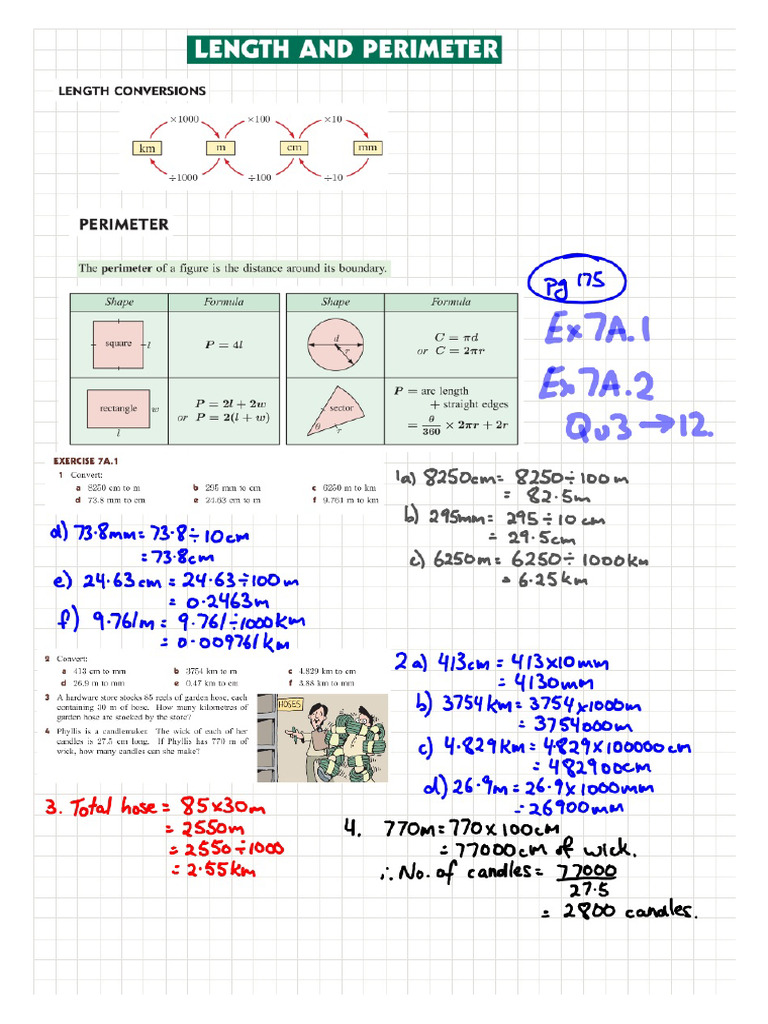 LENGTH AND PERIMETER
LENGTH CONVERSIONS
×1000 ×100 ×10
km m cm mm
÷1000 ÷100 ÷10
PERIMETER
The perimeter of a figure is the distance around its boundary.
pg 175
Ex 7A.1
Ex 7A.2
Qu 3 → 12.
Shape Formula Shape Formula
square l P = 4l
d r C = πd
or C = 2πr
rectangle w l P = 2l + 2w
or P = 2(l + w)
sector θ r P = arc length
+ straight edges
= θ/360 × 2πr + 2r
EXERCISE 7A.1
1 Convert:
a 8250 cm to m b 295 mm to cm c 6250 m to km
d 73.8 mm to cm e 24.63 cm to m f 9.761 m to km
1a) 8250cm = 8250÷100m
= 82.5m
b) 295mm = 295÷10cm
= 29.5cm
c) 6250m = 6250÷1000km
= 6.25km
d) 73.8mm = 73.8÷10cm
= 73.8cm
e) 24.63cm = 24.63÷100m
= 0.2463m
f) 9.761m = 9.761÷1000km
= 0.009761km
2 Convert:
a 413 cm to mm b 3754 km to m c 4.829 km to cm
d 26.9 m to mm e 0.47 km to cm f 3.88 km to mm
3 A hardware store stocks 85 reels of garden hose, each
containing 30 m of hose. How many kilometres of
garden hose are stocked by the store?
4 Phyllis is a candlemaker. The wick of each of her
candles is 27.5 cm long. If Phyllis has 770 m of
wick, how many candles can she make?
HOSES
2a) 413cm = 413×10mm
= 4130mm
b) 3754km = 3754×1000m
= 3754000m
c) 4.829km = 4.829×100000cm
= 482900cm
d) 26.9m = 26.9×1000mm
= 26900mm
3. Total hose = 85×30m
= 2550m
= 2550÷1000
= 2.55km
4. 770m = 770×100cm
= 77000cm of wick.
∴ No. of candles = 77000
27.5
= 2800 candles.